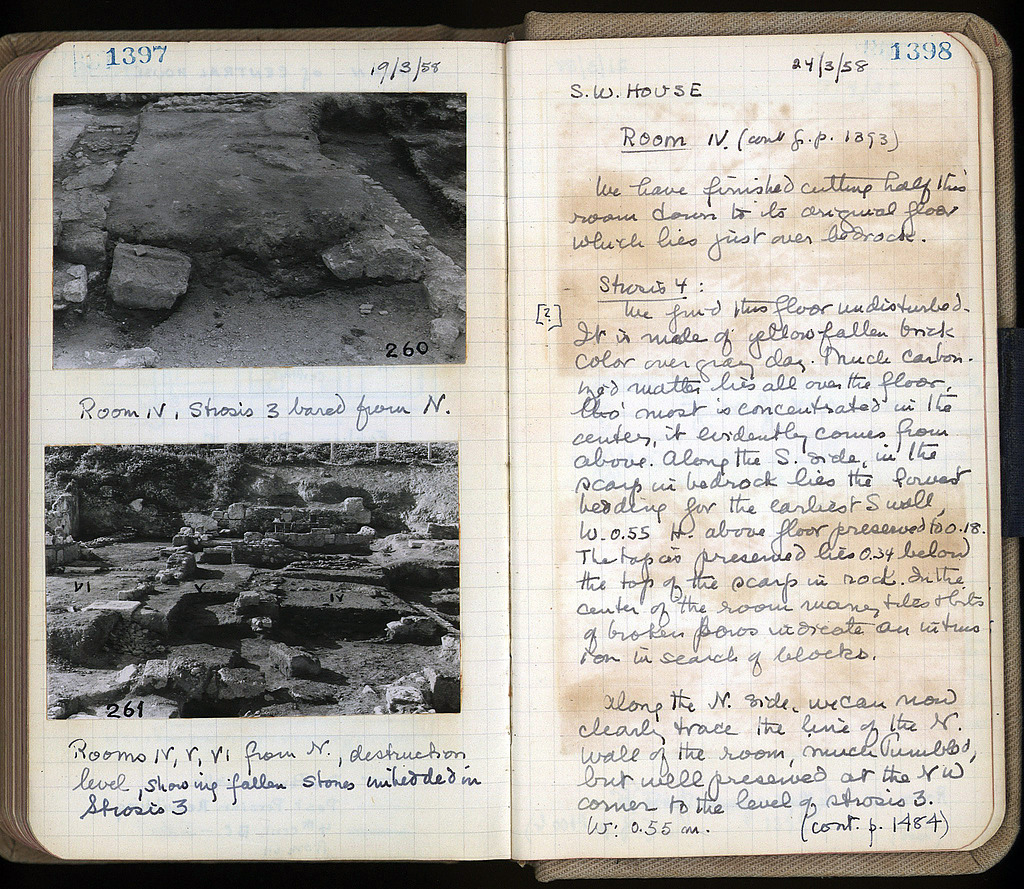 1397
19/3/58
260
Room IV, Strosis 3 bared from N.
VI
V
IV
261
Rooms IV, V, VI from N., destruction
level, showing fallen stones imbedded in
Strosis 3
1398
24/3/58
S.W. HOUSE
Room IV. (cont fr. p. 1393)
We have finished cutting half this
room down to its original floor
which lies just over bedrock.
Strosis 4:
[?]
We find this floor undisturbed.
It is made of yellow fallen brick
color over gray clay. Much carbon-
ized matter lies all over the floor,
tho' most is concentrated in the
center, it evidently comes from
above. Along the S. side, in the
scarp in bedrock lies the lowest
bedding for the earliest S wall,
W. 0.55 H. above floor preserved to 0.18.
The top as preserved lies 0.34 below
the top of the scarp in rock. In the
center of the room many tiles & bits
of broken poros indicate an intrus-
ion in search of blocks.
Along the N. side, we can now
clearly trace the line of the N.
wall of the room, much tumbled,
but well preserved at the NW
corner to the level of strosis 3.
W: 0.55 m.
(cont. p. 1484)